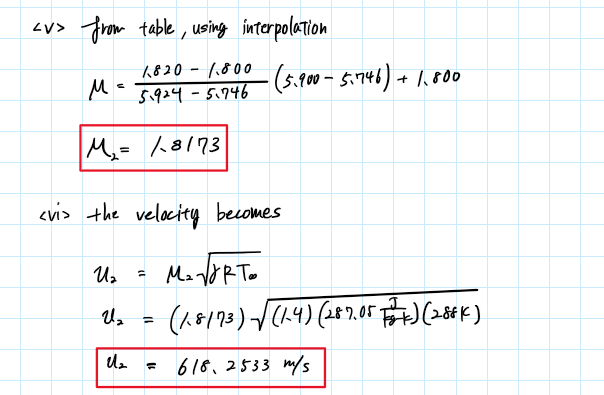 <v> from table, using interpolation
M = (1.820 - 1.800)/(5.924 - 5.746) (5.900 - 5.746) + 1.800
M₂ = 1.8173
<vi> the velocity becomes
u₂ = M₂√(γRT∞)
u₂ = (1.8173)√((1.4)(287.05 J/kg·K)(288K))
u₂ = 618.2533 m/s